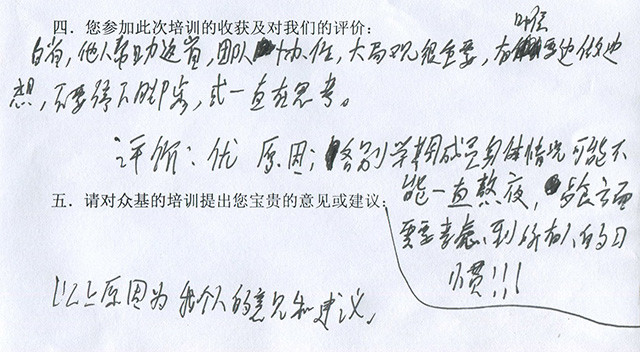 四．您参加此次培训的收获及对我们的评价：
自省，他人帮助返省，团队协作，大局观很重要，有时候要边做边
想，不要停下脚步，或一直在思考。
评价：优 原因：个别学期成员身体情况可能不
能一直熬夜，饮食方面
五．请对众基的培训提出您宝贵的意见或建议：
需要考虑到所有人的习
惯！！！
以上原因为我个人的意见和建议，